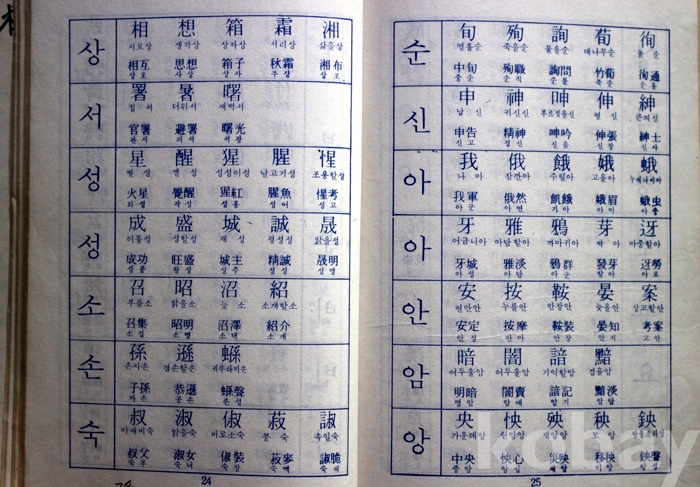 상
相 想 箱 霜 湘
서로상 생각상 상자상 서리상 삶을상
相互 思想 箱子 秋霜 湘布
상호 사상 상자 추상 상포
서
署 暑 曙
집서 더위서 새벽서
官署 避暑 曙光
관서 피서 서광
성
星 醒 猩 腥 惺
별성 깰성 성성이성 날고기성 조용할성
火星 覺醒 猩紅 腥魚 惺考
화성 각성 성홍 성어 성고
성
成 盛 城 誠 晟
이룰성 성할성 재성 정성성 맑을성
成功 旺盛 城主 精誠 晟明
성공 왕성 성주 정성 성명
소
召 昭 沼 紹
부를소 밝을소 늪소 소개할소
召集 昭明 沼澤 紹介
소집 소명 소택 소개
손
孫 遜 蓀
손자손 겸손할손 귀뚜라미손
子孫 恭遜
자손 공손
숙
叔 淑 俶 菽 諔
아재비숙 맑을숙 비로소숙 콩숙 속일숙
叔父 淑女 俶裝 菽麥 諔詭
숙부 숙녀 숙장 숙맥 숙궤
24
순
旬 殉 詢 荀 徇
열흘순 죽을순 물을순 대나무순 돌순
中旬 殉職 詢問 竹荀 徇通
중순 순직 순문 죽순 순통
신
申 神 呻 伸 紳
납신 귀신신 부르짖을신 펼신 큰띠신
申告 精神 呻吟 伸張 紳士
신고 정신 신음 신장 신사
아
我 俄 餓 娥 蛾
나아 잠깐아 주릴아 고을아 누에나비아
我軍 俄然 飢餓 娥眉 蛾虫
아군 아연 기아 아미 아충
아
牙 雅 鴉 芽 迓
어금니아 아담할아 까마귀아 싹아 마중할아
牙城 雅淡 鴉群 發芽 迓勞
아성 아담 아군 발아 아로
안
安 按 鞍 晏 案
편안안 누를안 안장안 늦을안 상고할안
安定 按摩 鞍裝 晏知 考案
안정 안마 안장 안지 고안
암
暗 闇 諳 黯
어두울암 어두울암 기억할암 검을암
明暗 闇賣 諳記 黯淡
명암 암매 암기 암담
앙
央 怏 殃 秧 鉠
가운데앙 원망앙 재앙앙 모앙 방울소리앙
中央 怏心 災殃 移秧 鉠聲
중앙 앙심 재앙 이앙 앙성
25